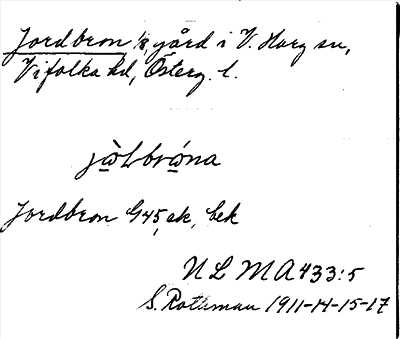 Jordbron, 1/8 gård i V. Harg sn,
Vifolka hd, Österg. l.
jὼ̠Lbrώ̠na
Jordbron G45, ek, bek
ULMA 433:5
S. Rothman 1911-14-15-17